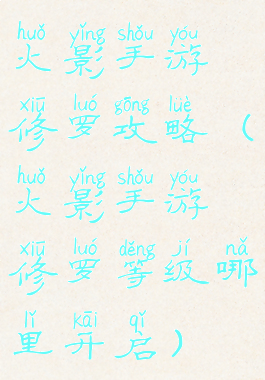 huǒ yǐng shǒu yóu
火影手游
xiū luó gōng lüè
修罗攻略（
huǒ yǐng shǒu yóu
火影手游
xiū luó děng jí nǎ
修罗等级哪
lǐ kāi qǐ
里开启）